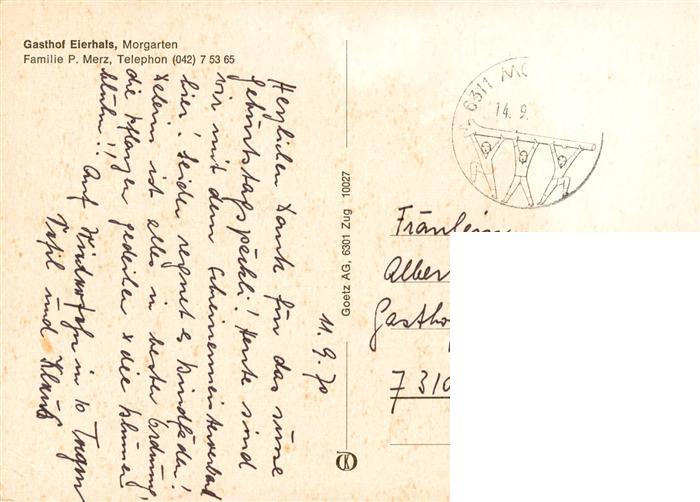 Gasthof Eierhals, Morgarten
Familie P. Merz, Telephon (042) 7 53 65
11. 9. 70
Herzlichen Dank für das süsse
Geburtstagspäckli! Heute sind
wir mit dem Schreinermeisterverband
hier. Leider regnet es Bindfäden!
Daheim ist alles in bester Ordnung,
die Pflanzen gedeihen & die Blumen
blühen!! Auf Wiedersehn in 10 Tagen
und Klaus
Goetz AG, 6301 Zug 10027
6311 MO
14. 9.
Fräulein
Alber
Gastho
7310